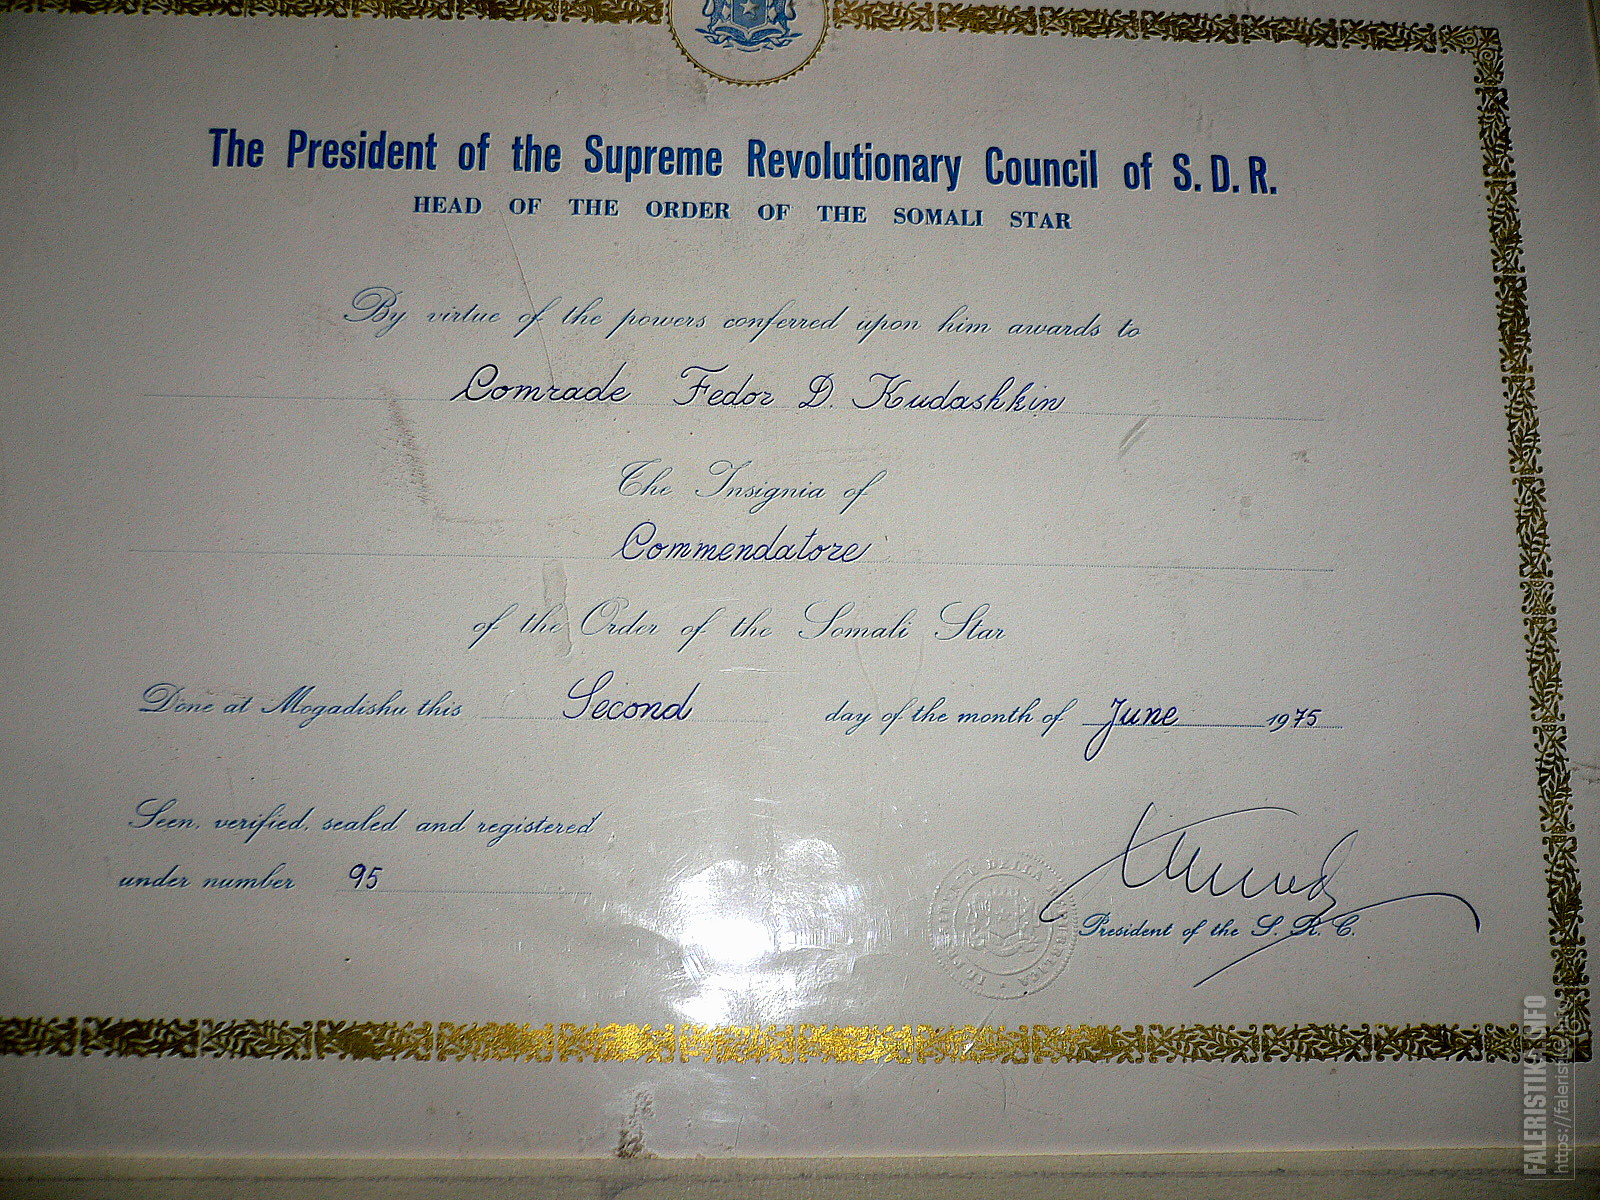 The President of the Supreme Revolutionary Council of S. D. R.
HEAD OF THE ORDER OF THE SOMALI STAR
By virtue of the powers conferred upon him awards to
Comrade Fedor D. Kudashkin
The Insignia of
Commendatore
of the Order of the Somali Star
Done at Mogadishu this Second day of the month of June 1975
Seen, verified, sealed and registered
under number 95
President of the S. R. C.
IL PRESIDENTE DELLA REPUBBLICA
FALERISTIKA.INFO